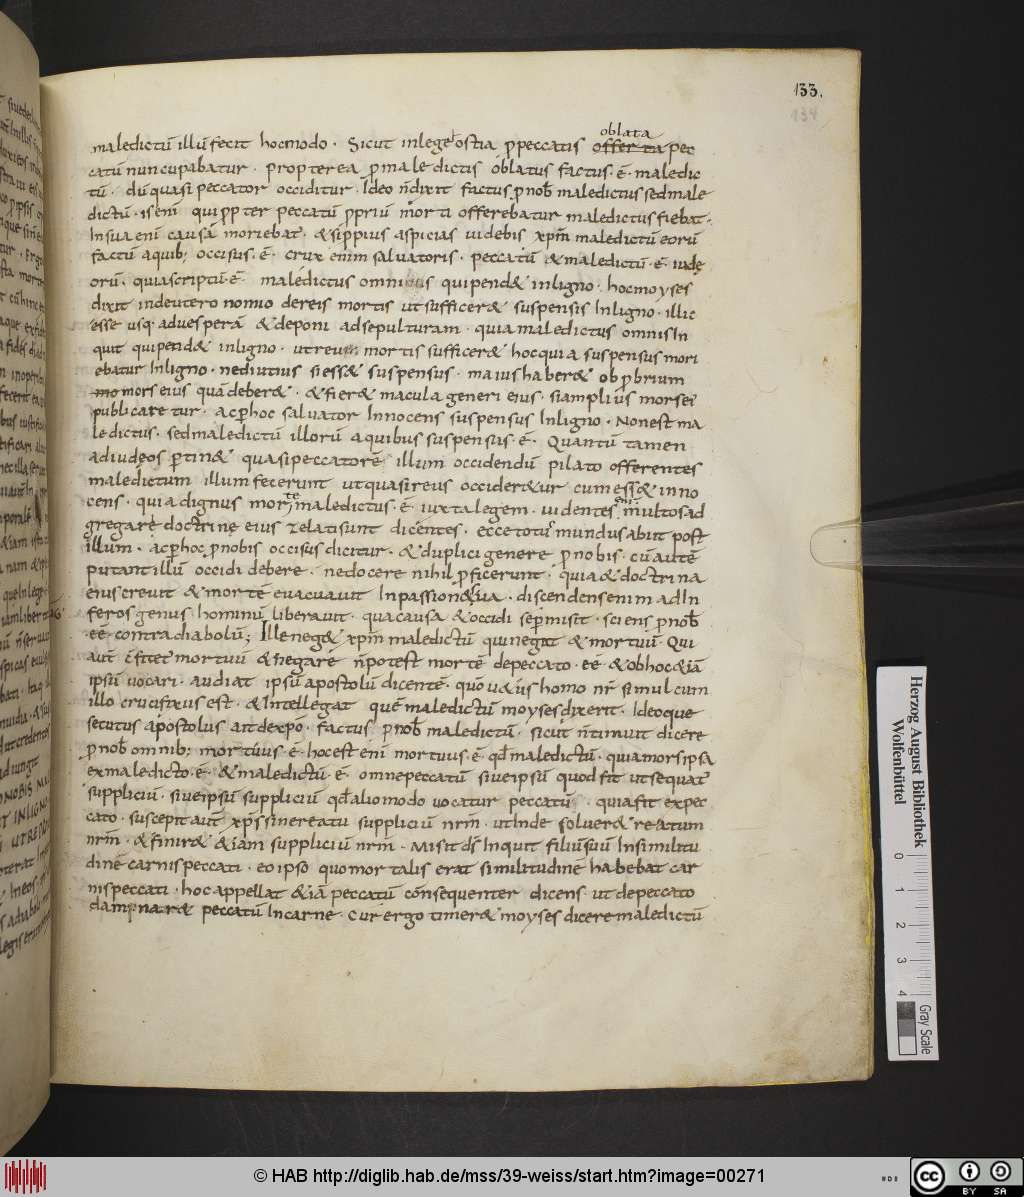 133.
134
oblata
maledictū illū fecit hocmodo · Sicut inlege ostia ppeccatis offerta pec
catū nuncupabatur · propterea pmaledictis oblatus factus · ē · maledic
tū · dū quasi peccator occiditur · Ideo ñ dixit factus pnob maledictus sed male
dictū · is eni qui ppter peccatū ppriū morti offerebatur maledictus fiebat ·
Insua eni causā moriebat · & si ppius aspicias uidebis xpm maledictū eorū
factū aquib; occisus · ē · crux enim saluatoris · peccatū & maledictū · ē · iudę
orū · quia scriptū · ē · maledictus omnis quipend& inligno · hoc moyses
dixit indeutero nomio dereis mortis ut sufficer& suspensis Inligno · illic
esse usq aduesperā & deponi adsepulturam · quia maledictus omnis In
quit quipend& inligno · utreum mortis sufficer& hoc quia suspensus mori
ebatur Inligno · nediutius si ess& suspensus · maius haber& obpbrium
mo mors eius quā deber& · & fier& macula generi eius · si amplius mors ei
publicaretur · acphoc saluator Innocens suspensus Inligno · Nonest ma
ledictus · sed maledictū illorū aquibus suspensus · ē · Quantū tamen
adiudeos ptin& quasi peccatorē illum occidendū pilato offerentes
maledictum illum fecerunt ut quasi reus occider&ur cum ess& inno
cens · quia dignus morte maledictus · ē · iuxta legem · uidentes eni multos ad
gregare doctrinę eius zelati sunt dicentes · ecce totus mundus abiit post
illum · acphoc pnobis occisus dicitur · & duplici genere pnobis · cū autē
putant illū occidi debere · nedocere nihil pficerunt · quia & doctrina
eius creuit & mortē euacuauit Inpassione sua · discendens enim adIn
feros genus hominū liberauit · qua causa & occidi se pmisit · sciens pnob
· eē · contra diabolū; Ille neg& xpm maledictū qui negat & mortuū · Qui
aut cfitet mortuū & negare ñ potest mortē depeccato · eē · & obhoc &iā
ipsū uocari · audiat ipsū apostolū dicentē · quō u&us homo nr simul cum
illo crucifixus est · & Intellegat quē maledictū moyses dixerit · Ideoque
secutus apostolus ait dexpo · factus pnob maledictū · sicut ñ timuit dicere
pnob omnib; mortuus · ē · hoc est eni mortuus · ē · qd maledictū · quia mors ipsa
exmaledicto · ē · & maledictū · ē · omne peccatū siue ipsū quod fit ut sequat
suppliciū · siue ipsū suppliciū qd alio modo uocatur peccatū · quia fit expec
cato · suscepit aut xps sine reatu suppliciū nrm · ut Inde soluer& reatum
nrm · & finir& &iam suppliciū nrm · Misit ds Inquit filiū suū Insimilitu
dinē carnis peccati · eo ipso quo mortalis erat similitudinē habebat car
nis peccati · hoc appellat &iā peccatū consequenter dicens · ut depeccato
damnar& peccatū Incarne · Cur ergo timer& moyses dicere maledictū
Herzog August Bibliothek
Wolfenbüttel
0 1 2 3 4
Gray Scale
© HAB http://diglib.hab.de/mss/39-weiss/start.htm?image=00271
cc BY SA